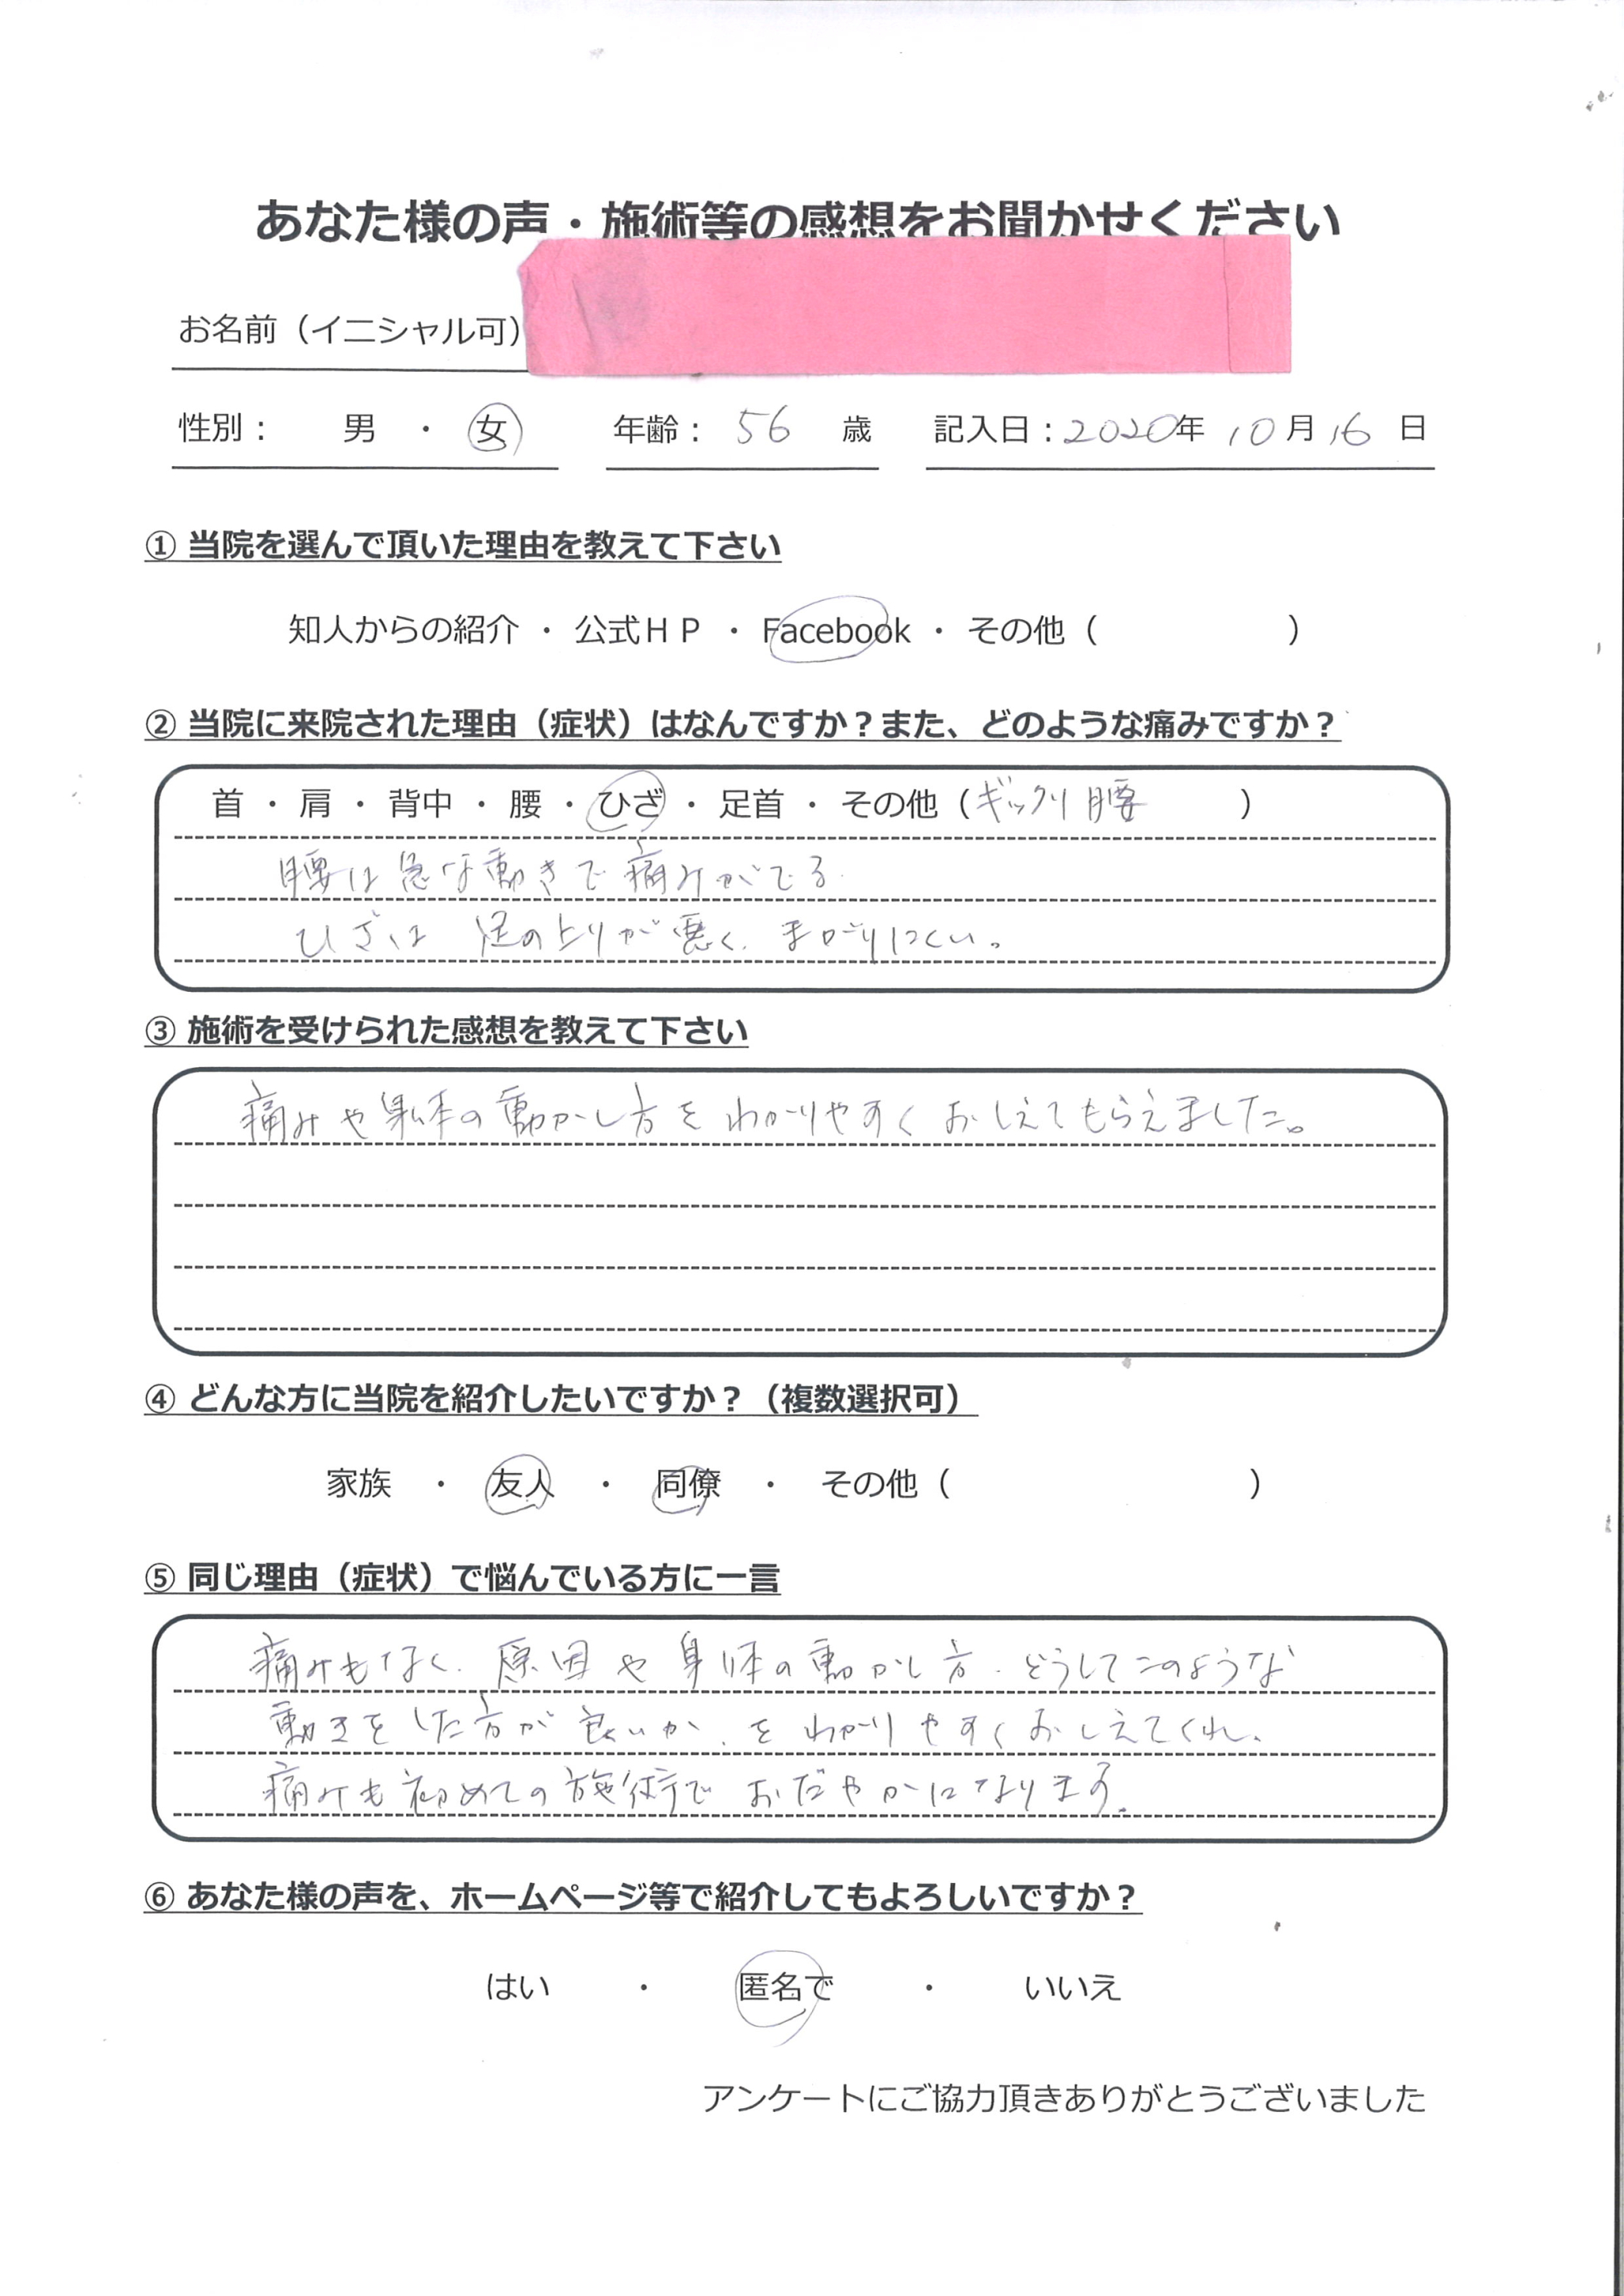 あなた様の声・施術等の感想をお聞かせください
お名前（イニシャル可）
性別： 男 ・ 女 年齢： 56 歳 記入日：2020年 10月 16 日
① 当院を選んで頂いた理由を教えて下さい
知人からの紹介 ・ 公式ＨＰ ・ Facebook ・ その他（ ）
② 当院に来院された理由（症状）はなんですか？また、どのような痛みですか？
首 ・ 肩 ・ 背中 ・ 腰 ・ ひざ ・ 足首 ・ その他（ギックリ腰 ）
腰は急な動きで痛みがでる
ひざは 足の上りが悪く、まがりにくい。
③ 施術を受けられた感想を教えて下さい
痛みや身体の動かし方をわかりやすくおしえてもらえました。
④ どんな方に当院を紹介したいですか？（複数選択可）
家族 ・ 友人 ・ 同僚 ・ その他（ ）
⑤ 同じ理由（症状）で悩んでいる方に一言
痛みもなく、原因や身体の動かし方、どうしてこのような
動きをした方が良いか、をわかりやすくおしえてくれ、
痛みも初めての施術でおだやかになります。
⑥ あなた様の声を、ホームページ等で紹介してもよろしいですか？
はい ・ 匿名で ・ いいえ
アンケートにご協力頂きありがとうございました